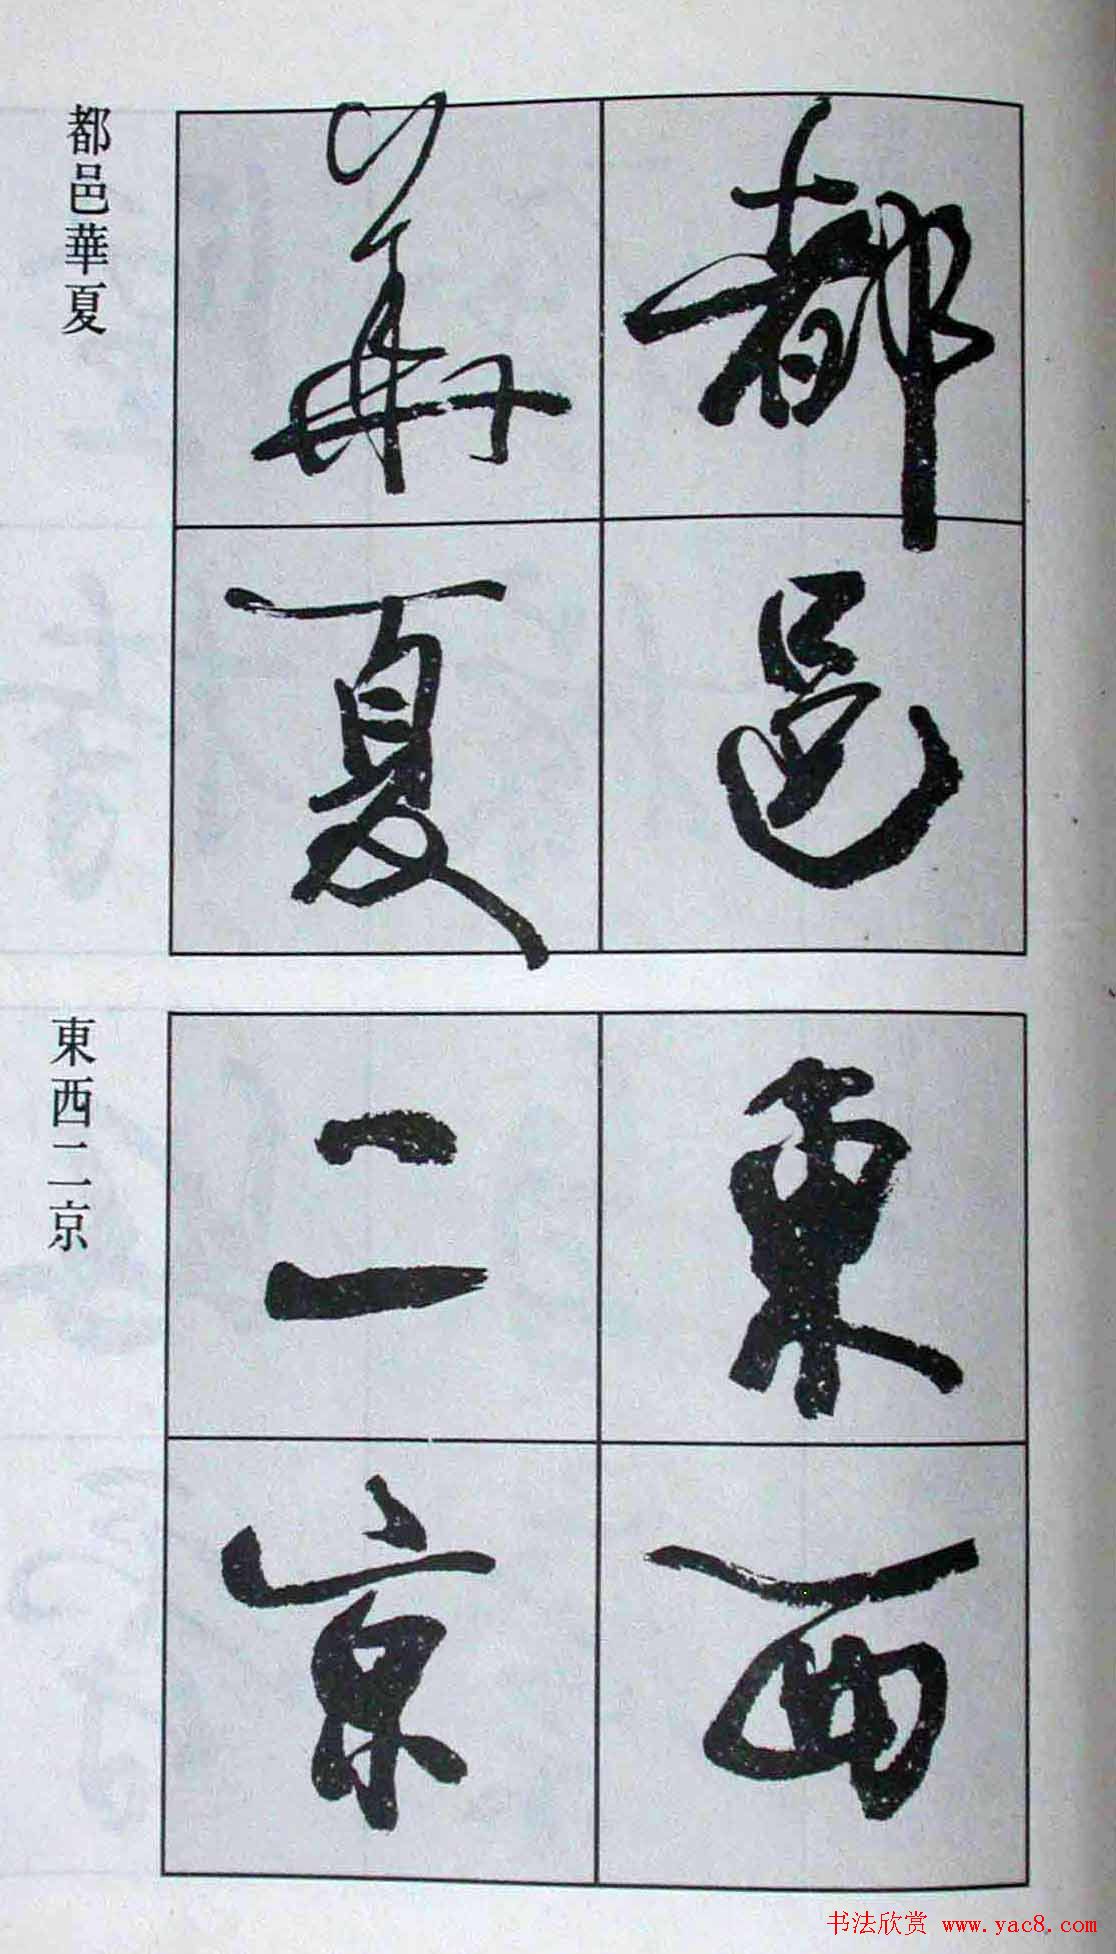 都邑
華夏
都邑華夏
東西
二京
東西二京
书法欣赏 www.yac8.com